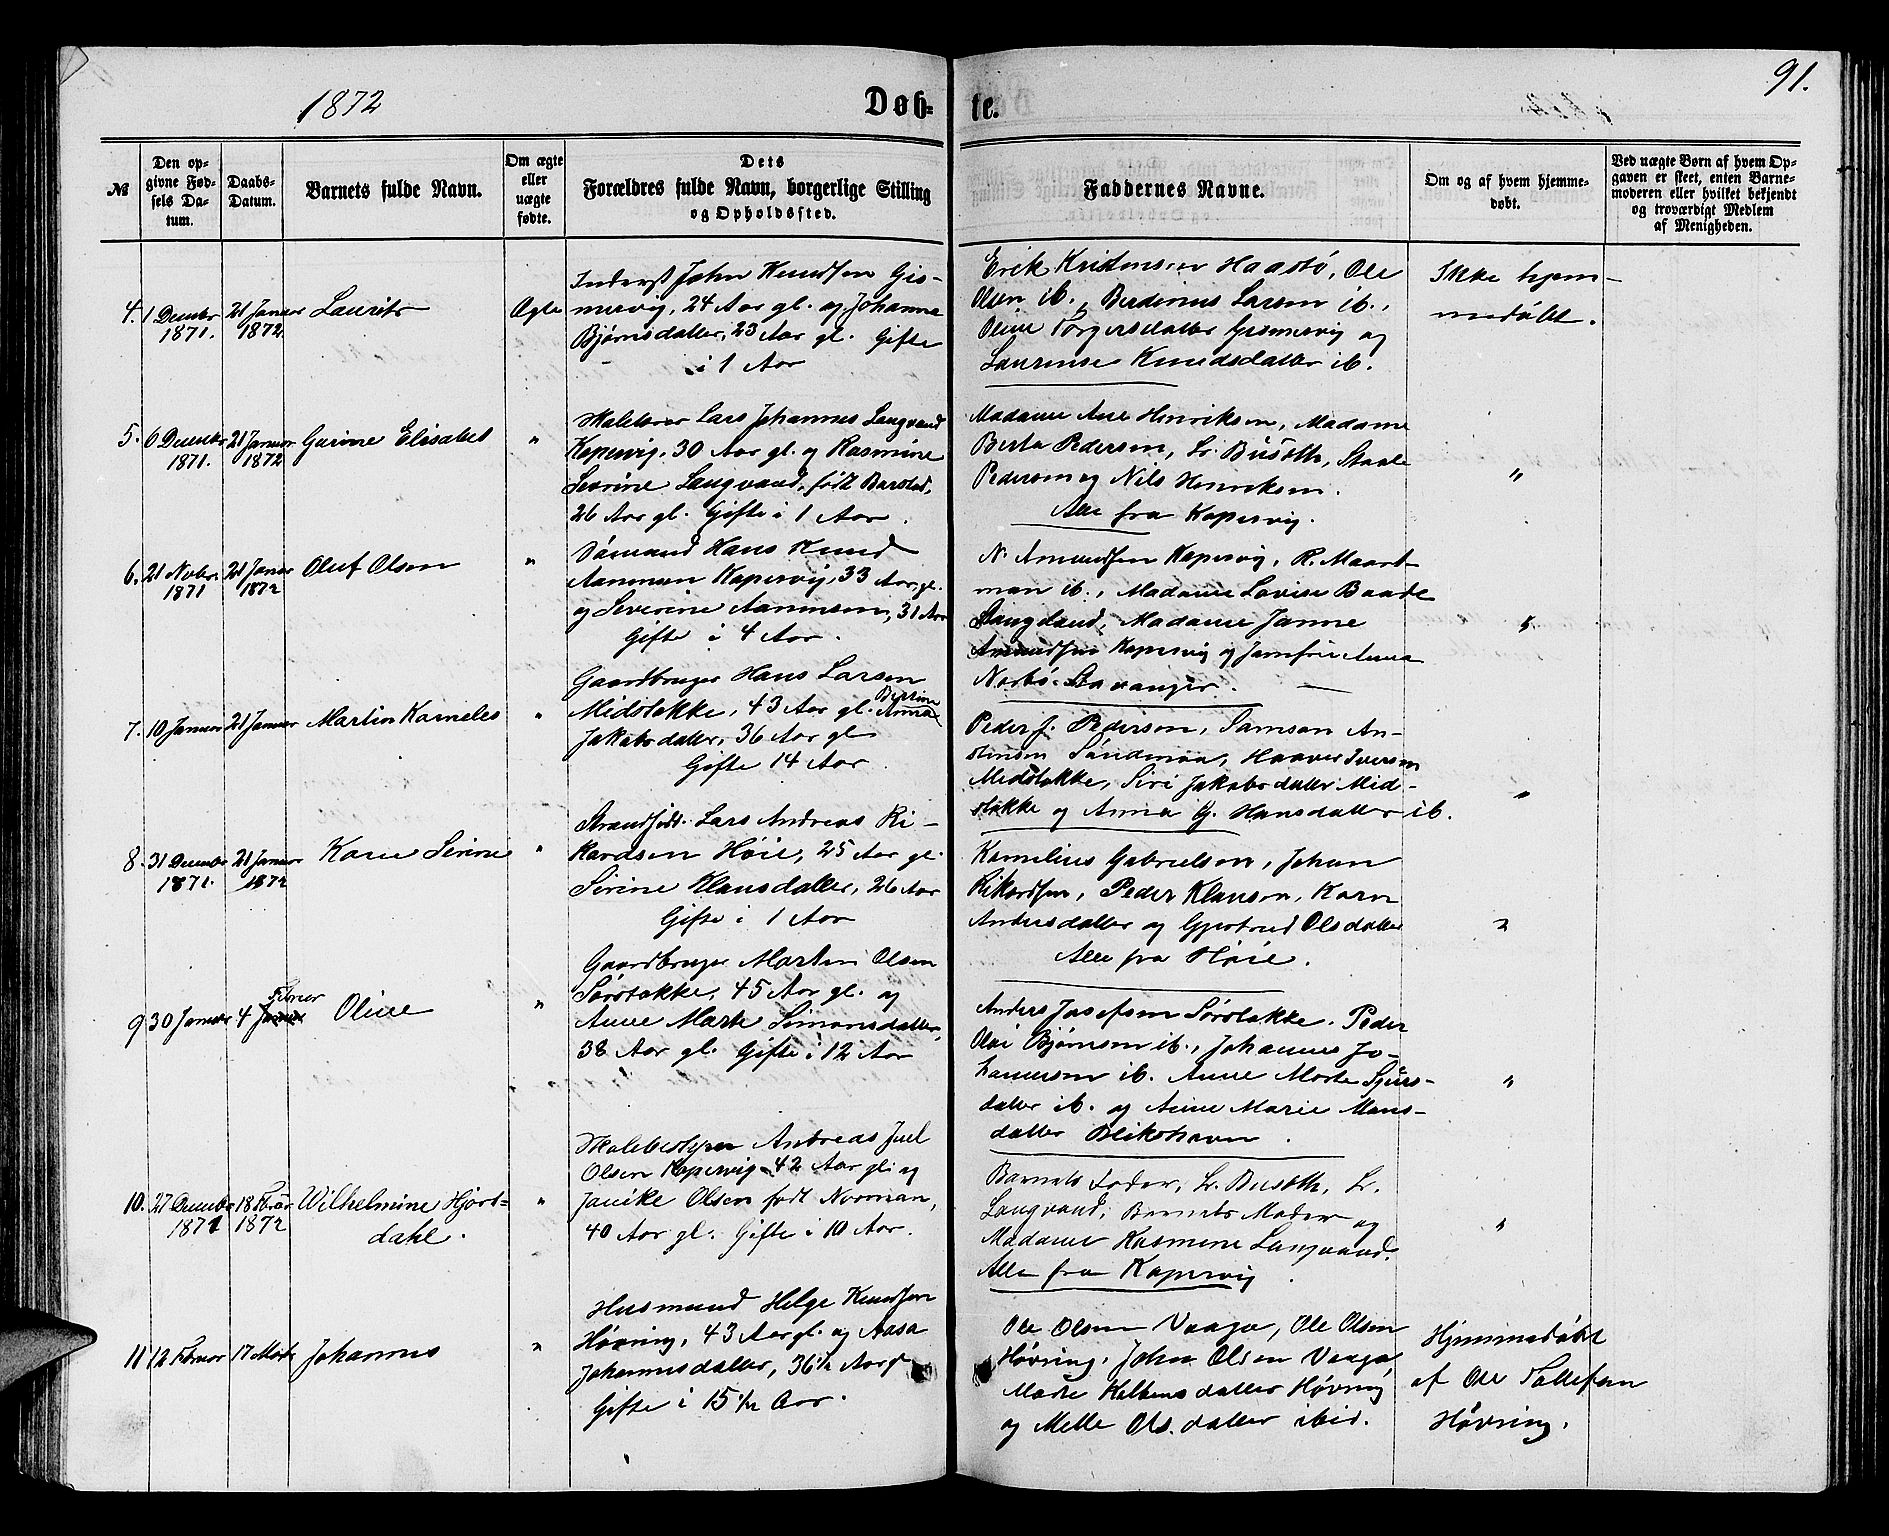 1872
Døb-
te.
91.
№
Den op-
givne Fød-
sels Da-
tum.
Daabs-
Datum.
Barnets fulde Navn.
Om ægte
eller
uægte
fødte.
Dets
Forældres fulde Navn, borgerlige Stilling
og Opholdssted.
Faddernes Navne.
Om og af hvem hjemme-
døbt.
Ved uægte Børn af hvem Op-
gaven er skeet, enten Barne-
moderen eller hvilket bekjendt
og troværdigt Medlem
af Menigheden.
4. 1 Decembr 1871. 21 Januar 1872. Laurits Ægte
Inderst John Knudsen Gis-
mervig, 24 Aar gl. og Johanne
Bjørnsdatter, 23 Aar gl. Gifte
i 1 Aar
Erik Kristensen Haastø, Ole
Olsen ib., Berdinius Larsen ib.,
Oline Torgersdatter Gismervig og
Laurense Knudsdatter ib.
Ikke hjem-
medøbt.
5. 6 Decembr 1871. 21 Januar 1872 Gurine Elisabet "
Lars Johannes Langvand
Kopervig, 30 Aar gl. og Rasmine
Severine Langvand, født Barstad,
26 Aar gl. Gifte i 1 Aar.
Madame Ane Henriksen, Madame
Berta Pedersen, Hr. Busoth, Staale
Pedersen og Nils Henriksen.
Alle fra Kopervig.
"
6. 21 Novbr 1871 21 Januar 1872 Oluf Olsen "
Sømand Hans Knud
Aanensen Kopervig, 33 Aar gl.
og Severine Aanensen, 31 Aar
Gifte i 4 Aar.
N. Amundsen Kopervig, R. Maart-
man ib., Madame Lovise Baade
Langeland, Madame Janne
Amundsen Kopervig og Jomfrue Anna
Norbø Stavanger.
"
7. 10 Januar 21 Januar Martin Korneles "
Gaardbruger Hans Larsen
Midstokke, 43 Aar gl. Bertine Anna
Jakobsdatter, 36 Aar gl
Gifte 14 Aar.
Peder J. Pedersen, Samson An-
stensen Søndenaa, Haaver Iversen
Midstokke, Siri Jakobsdatter Mid-
stokke og Anna G. Hansdatter ib.
"
8. 31 Decembr 1871. 21 Januar 1872 Karen Serine "
Strandsidd. Lars Andreas Ri-
kardsen Høie, 25 Aar gl.
Serine Klausdatter, 26 Aar
Gifte i 1 Aar
Kornelius Gabrielsen, Johan
Rikardsen, Peder Klausen, Karen
Andersdatter og Gjertrud Olsdatter
Alle fra Høie.
"
9 30 Januar 4 Februar Januar Oline "
Gaardbruger Martin Olsen
Sørstokke, 45 Aar gl. og
Anne Marte Simonsdatter,
38 Aar gl. Gifte i 12 Aar
Anders Josefsen Sørstokke. Peder
Olai Bjørnsen ib., Johannes Jo-
hannesen ib. Anne Marte Sjurs-
datter ib. og Anne Marie Mons-
datter Blikshavn.
"
10. 27 Decembr 1871 18 Febrar 1872 Wilhelmine Hjort-
dahl. "
Skolebestyrer Andreas Juel
Olsen Kopervig 42 Aar gl. og
Janike Olsen født Norman,
40 Aar gl. Gifte i 10 Aar.
Barnets Fader, Hr. Busoth, Hr.
Langvand, Barnets Moder og
Madame Rasmine Langvand.
Alle fra Kopervig.
"
11 12 Februar 17 Marts Johannes "
Husmand Helge Knudsen
Høvring, 43 Aar gl. og Aasa
Johannesdatter, 36½ Aar gl
Gifte i 15½ Aar.
Ole Olsen Vaaga, Ole Olsen
Høvring, John Olsen Vaaga,
Marte Helgesdatter Høvring
og Melle Olsdatter ibid.
Hjemmedøbt
af Ole Tollefsen
Høvring.